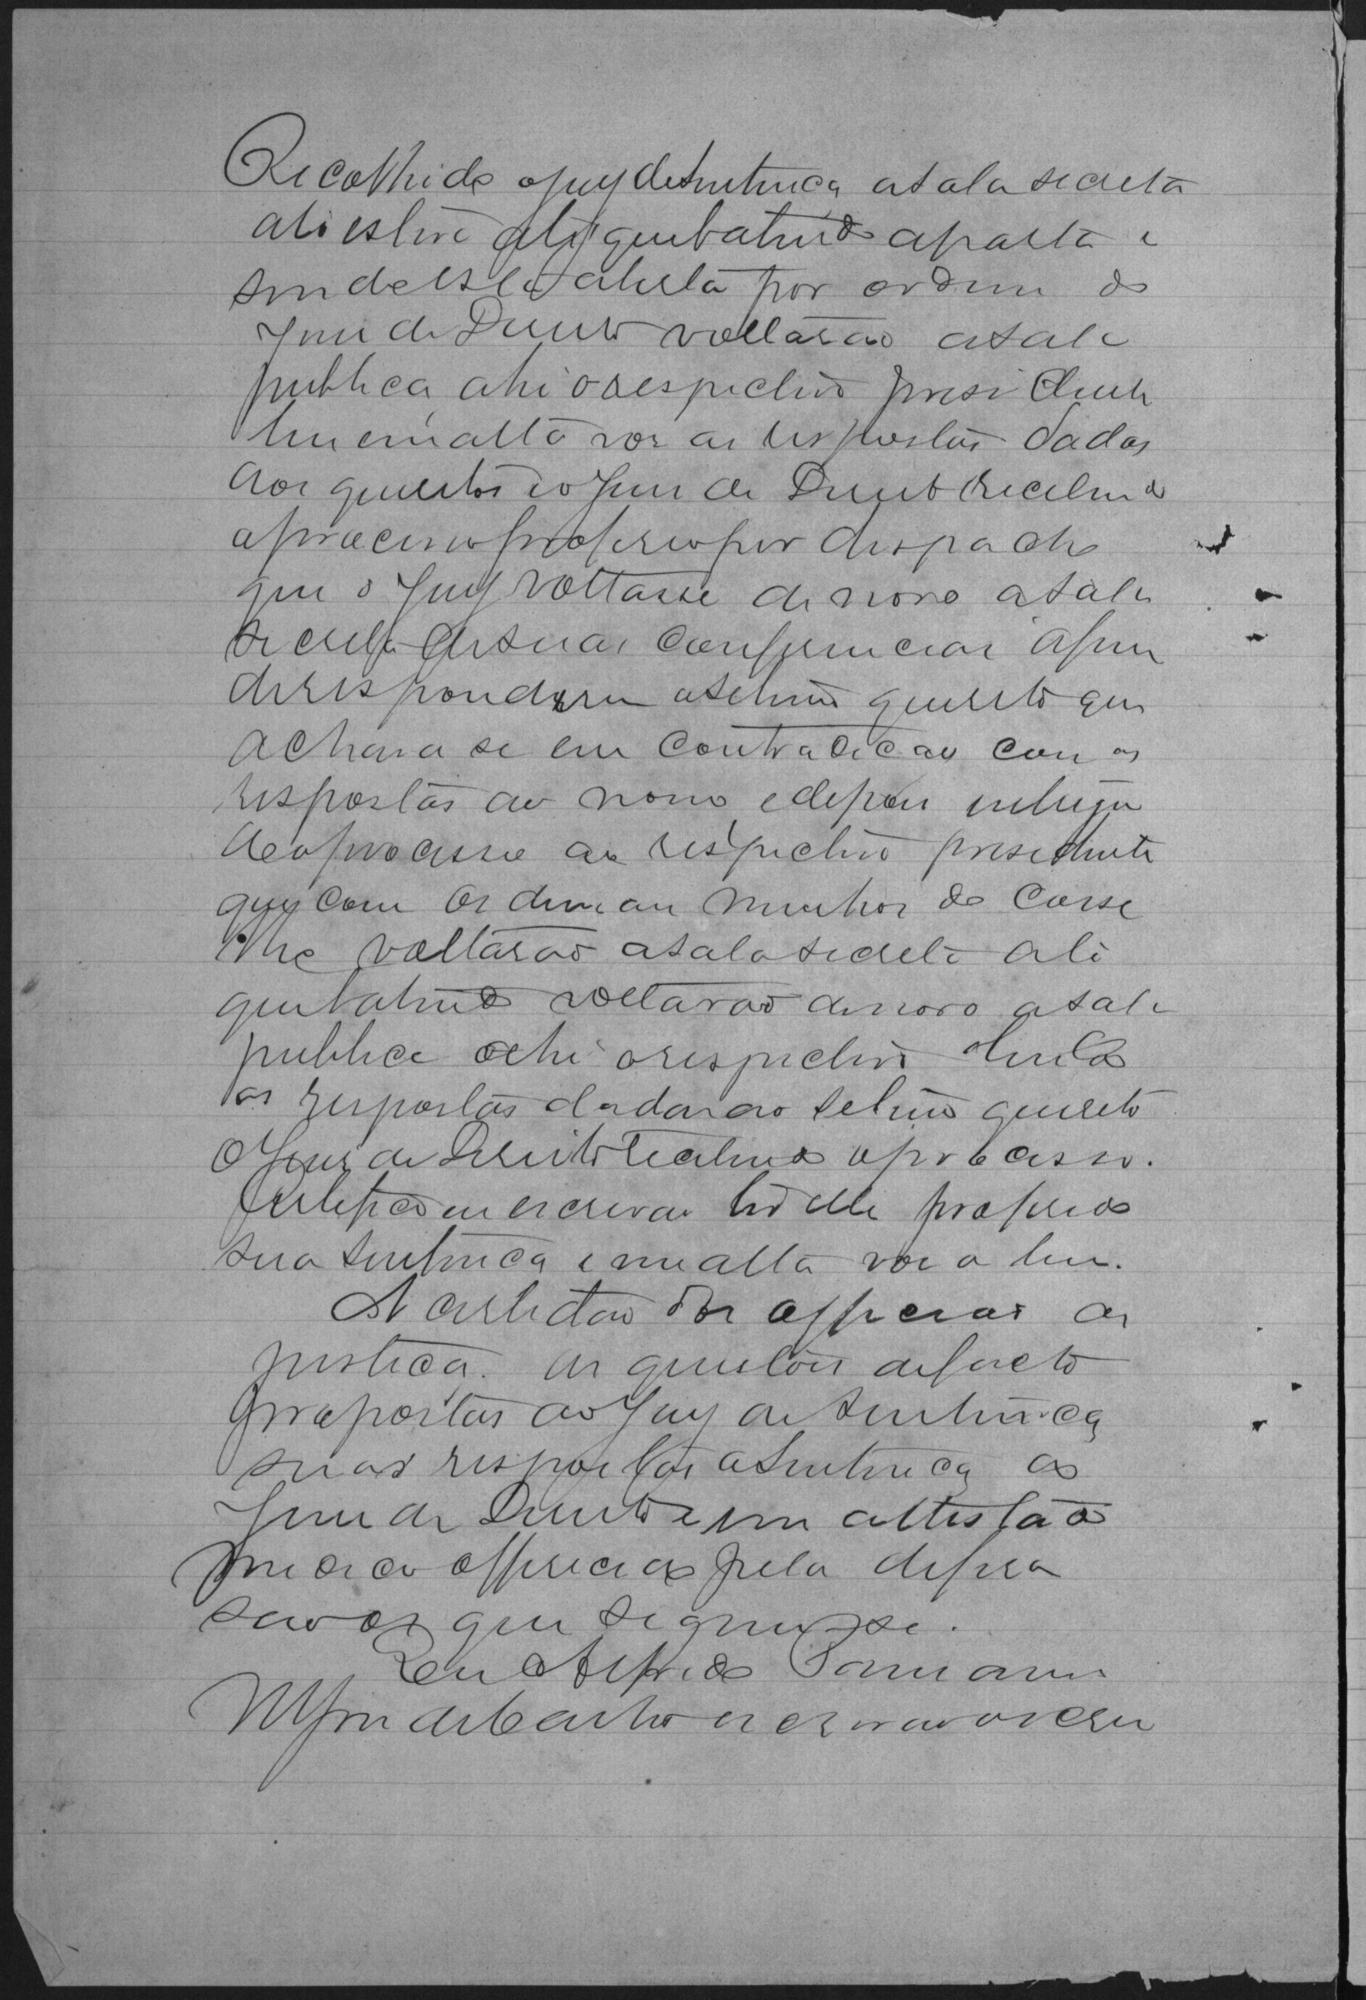 Recolhido o jury de sentença a sala secreta
ali esteve até que batendo a porta e
sendo esta aberta por ordem do
Juiz de Direito voltarão a sala
publica, ahi o respectivo presidente
leu em alta voz as respostas dadas
aos quesitos e o Juiz de Direito recebendo
o processo proferio por despacho
que o Jury voltasse de novo a sala
secreta de suas conferencias afim
de responderem o setimo quesito que
achava se em contradicao com as
respostas ao nono, e depois entregue
do o processo ao respectivo presidente
que com os demais membros do Conse
lho voltarão a sala secreta ali
que batendo voltarão de novo a sala
publica e ahi o respectivo lendo
as respostas dadas ao setimo quesito
o Juiz de Direito recebendo o processo.
eu escrivão elle proferido
sua sentença e em alta voz a leu.
A certidão dos officiaes de
justiça. os quesitos de facto
propostos ao Jury de sentença
suas respostas a sentença do
Juiz de Direito e um attestado
medico offerecido pela defesa
são os que seguem se.
Eu Alfredo
de Castro escrivão o escrevi